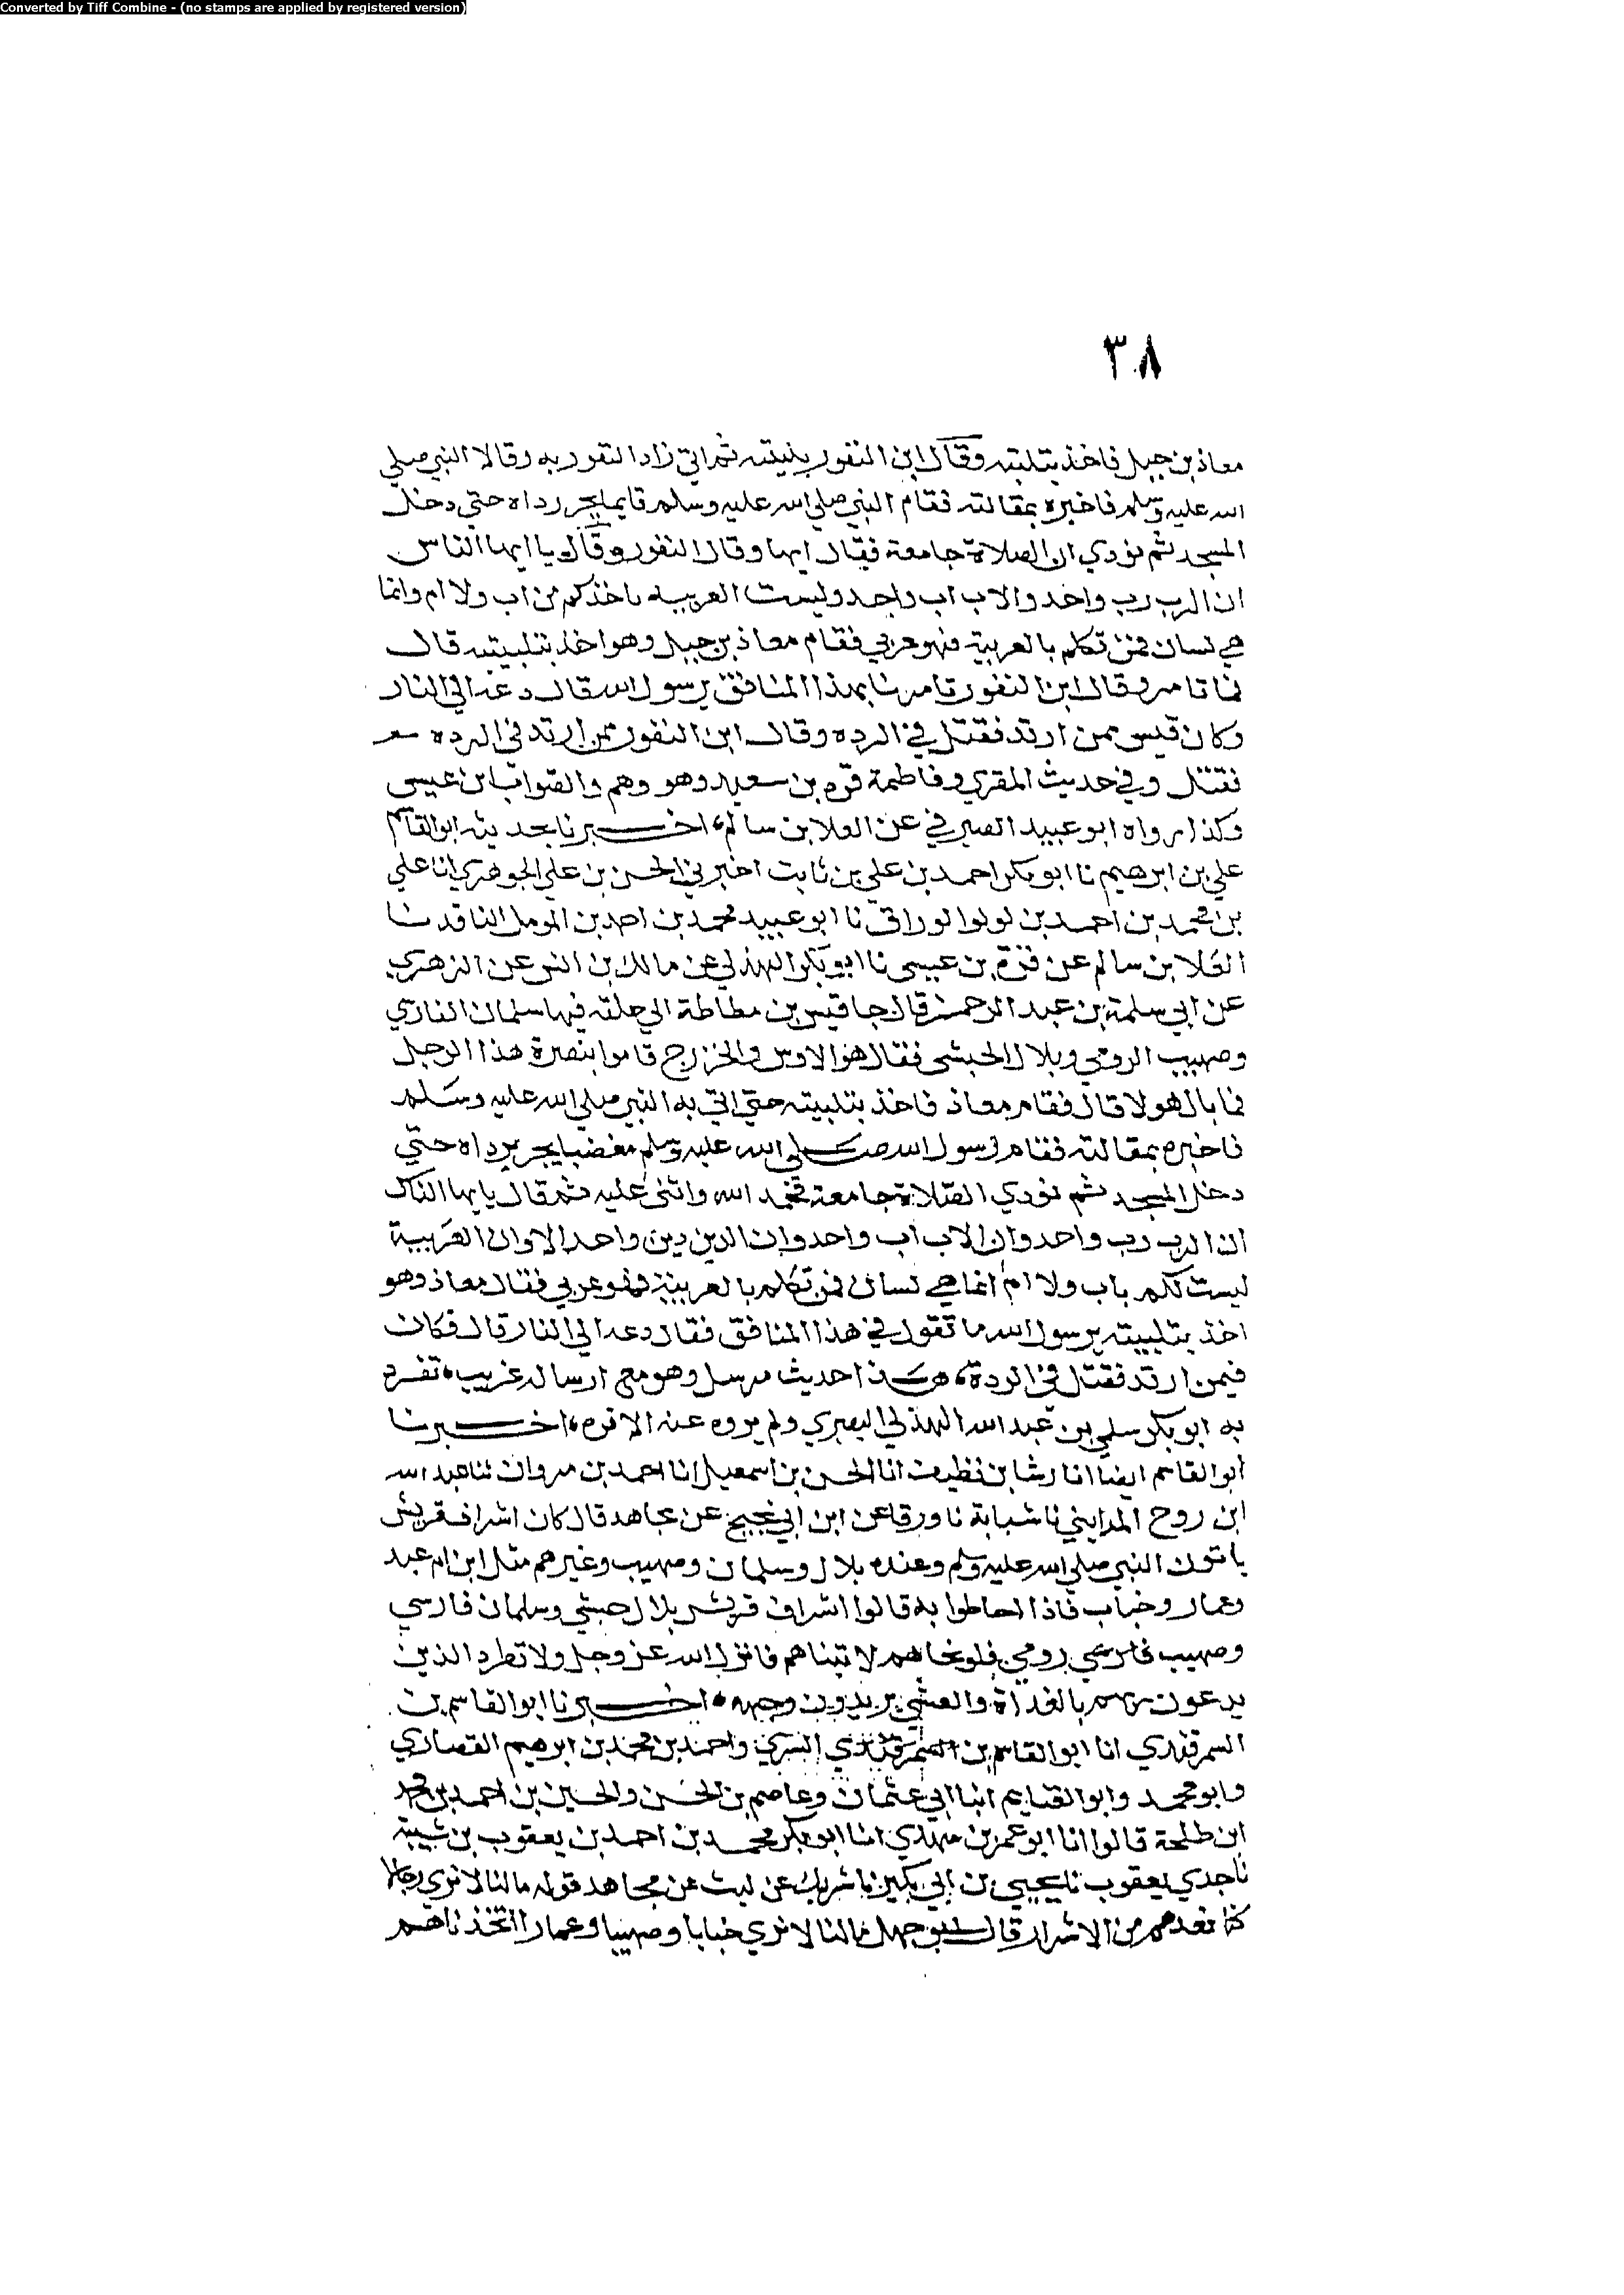 Converted by Tiff Combine - (no stamps are applied by registered version)
٣٨
معاذ بن جبل فاخذ بتلبته وقال ابن النقور بلبته ثم اتى زاد النقور به وقالا النبي صلى
الله عليه وسلم فاخبره بمقالته فقام النبي صلى الله عليه وسلم قايما يجر رداه حتى دخل
المسجد ثم نودي ان الصلاة جامعة فقال ايها وقال النقور وقال يا ايها الناس
ان الرب رب واحد والاب اب واحد وليست العربيه باخذكم من اب ولا ام وانما
هي لسان فمن تكلم بالعربية فهو عربي فقام معاذ بن جبل وهو اخذ بتلبيته قال
فما تامر وقال ابن النقور تامرنا بهذا المنافق يرسول الله قال دعه الى النار
وكان قيس ممن ارتد فقتل في الرده وقال ابن النقور ممن ارتد في الرده
فقتل وفي حديث المقري وفاطمة قرة بن سعيد وهو وهم والصواب ابن عيسى
وكذا رواه ابو عبيد الصيرفي عن العلا بن سالم، اخبرنا بحديثه ابو القاسم
علي بن ابرهيم نا ابو بكر احمد بن علي بن ثابت اخبرني الحسن بن علي الجوهري انا علي
بن محمد بن احمد بن لولوا لوراق نا ابو عبيد محمد بن احمد بن المومل الناقد نا
العلا بن سالم عن قرة بن عيسى نا ابو بكر الهذلي عن مالك بن انس عن الزهري
عن ابي سلمة بن عبد الرحمن قال جا قيس بن مطاطة الى حلقه فيها سلمان الفارسي
وصهيب الرومي وبلال الحبشي فقال هوا الاوس والخزرج قاموا بنصرة هذا الرجل
فما بال هولا قال فقام معاذ فاخذ بتلبيته حتى اتى به النبي صلى الله عليه وسلم
فاخبره بمقالته فقام رسول الله صلى الله عليه وسلم مغضبا يجر رداه حتى
دخل المسجد ثم نودي الصلاة جامعة فحمد الله واثنى عليه ثم قال يايها الناس
ان الرب رب واحد وان الاب اب واحد وان الدين دين واحد الا وان العربية
ليست لكم باب ولا ام انما هي لسان فمن تكلم بالعربية فهو عربي فقال معاذ وهو
اخذ بتلبيته يرسول الله ما تقول في هذا المنافق فقال دعه الى النار قال فكان
فيمن ارتد فقتل في الردة، هذا حديث مرسل وهو مع ارساله غريب، تفرد
به ابو بكر سلمي بن عبد الله الهذلي البصري ولم يروه عنه الا قره، اخبرنا
ابو القاسم ايضا انا رشا بن نظيف انا الحسن بن اسمعيل انا احمد بن مروان ثنا عبد الله
ابن روح المدايني نا شبابة نا ورقا عن ابن ابي نجيح عن مجاهد قال كان اشراف قريش
ياتون النبي صلى الله عليه وسلم وعنده بلال وسلمان وصهيب وغيرهم مثل ابن ام عبد
وعمار وخباب فاذا احاطوا به قالوا اشراف قريش بلال حبشي وسلمان فارسي
وصهيب رومي فلو نحاهم لاتيناهم فانزل الله عز وجل ولا تطرد الذين
يدعون ربهم بالغداة والعشي يريدون وجهه، اخبرنا ابو القاسم بن
السمرقندي انا ابو القاسم بن البسري واحمد بن محمد بن ابرهيم القصاري
وابو محمد وابو الغنايم ابنا ابي عثمان وعاصم بن الحسن والحسين بن احمد بن محمد
ابن طلحة قالوا انا ابو عمر بن مهدي انا ابو بكر محمد بن احمد بن يعقوب بن شيبة
نا جدي يعقوب نا يحيى بن ابي بكير نا شريك عن ليث عن مجاهد قوله ما لنا لا نرى رجالا
كنا نعدهم من الاشرار قال ابو جهل مالنا لا نرى خبابا وصهيبا وعمارا اتخذناهم